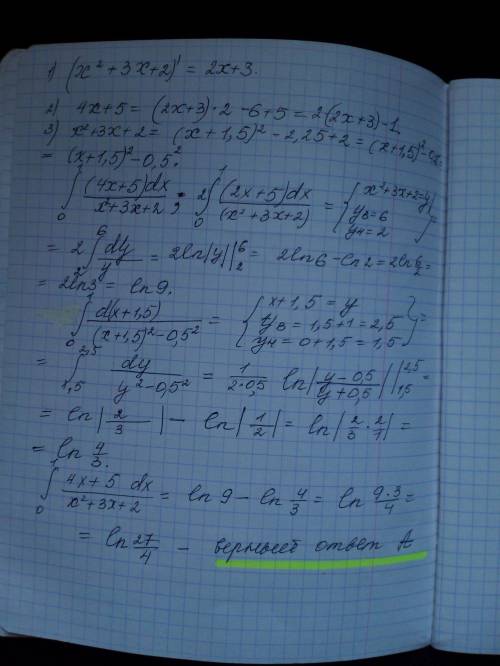 1) (x² + 3x + 2)' = 2x + 3.
2) 4x + 5 = (2x + 3) · 2 - 6 + 5 = 2(2x + 3) - 1.
3) x² + 3x + 2 = (x + 1,5)² - 2,25 + 2 = (x + 1,5)²
= (x + 1,5)² - 0,5².
∫₀¹ (4x + 5)dx / x² + 3x + 2 ; 2∫₀¹ (2x + 5)dx / (x² + 3x + 2) = { x² + 3x + 2 = y
yв = 6
yн = 2 } =
= 2∫₂⁶ dy/y = 2ln|y| |₂⁶ = 2ln6 - ln2 = 2ln 6/2 =
= 2ln3 = ln9.
∫₀¹ d(x + 1,5) / (x + 1,5)² - 0,5² = { x + 1,5 = y
yв = 1,5 + 1 = 2,5
yн = 0 + 1,5 = 1,5 } =
= ∫₁,₅²,⁵ dy / y² - 0,5² = 1 / 2·0,5 ln| y - 0,5 / y + 0,5 | |₁,₅²,⁵ =
= ln| 2/3 | - ln| 1/2 | = ln| 2/3 · 2/1 | =
= ln 4/3.
∫₀¹ 4x + 5 dx / x² + 3x + 2 = ln9 - ln 4/3 = ln 9·3/4 =
= ln 27/4 - ответ А